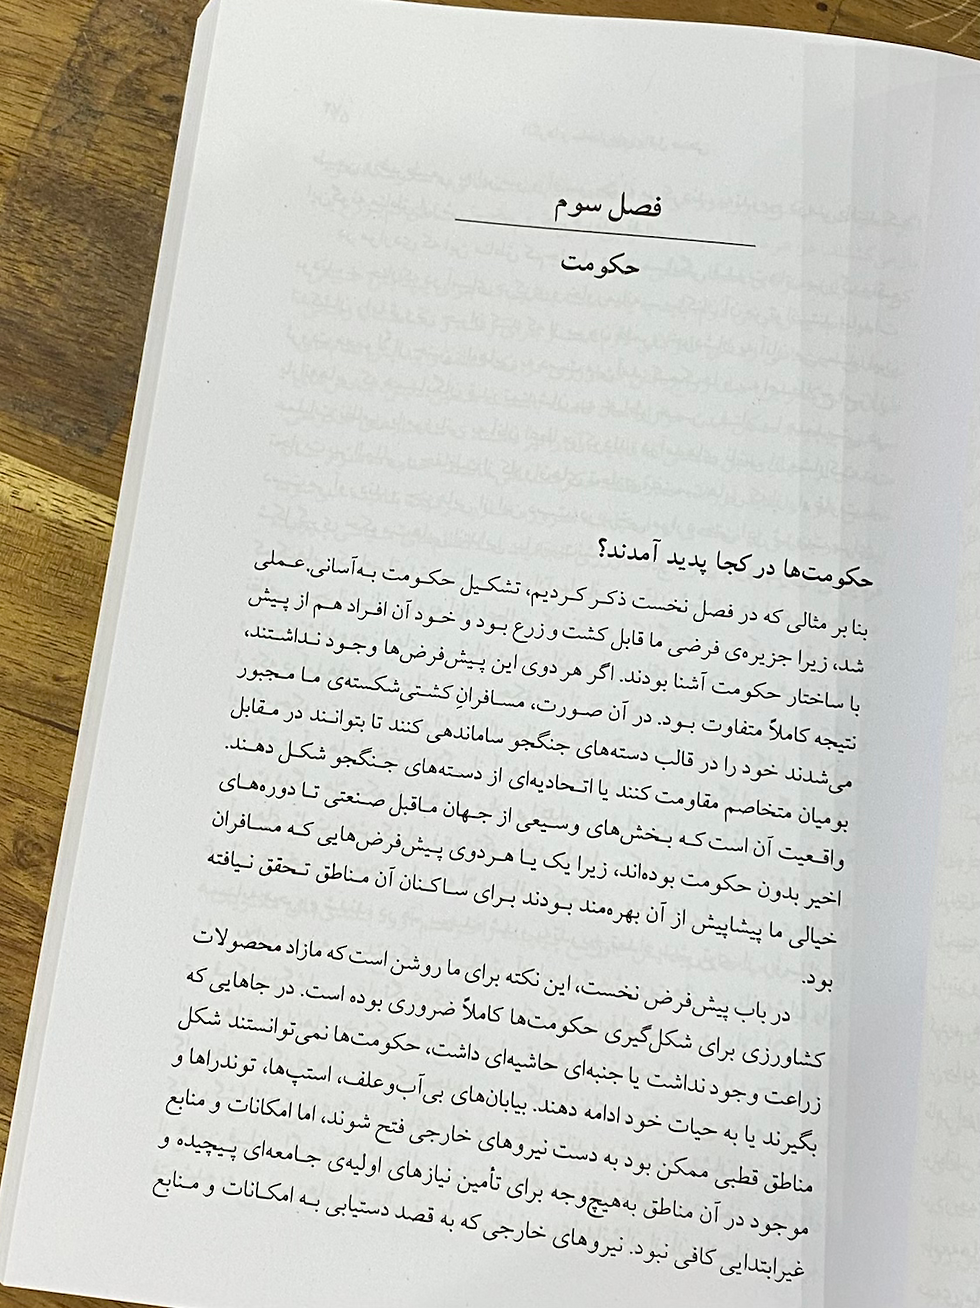 فصل سوم
حکومت
حکومت‌ها در کجا پدید آمدند؟
بنا بر مثالی که در فصل نخست ذکر کردیم، تشکیل حکومت به‌آسانی عملی
شد، زیرا جزیره‌ی فرضی ما قابل کشت و زرع بود و خود آن افراد هم از پیش
با ساختار حکومت آشنا بودند. اگر هر دوی این پیش‌فرض‌ها وجود نداشتند،
نتیجه کاملاً متفاوت بود. در آن صورت، مسافرانِ کشتی‌شکسته‌ی ما مجبور
می‌شدند خود را در قالب دسته‌های جنگجو ساماندهی کنند تا بتوانند در مقابل
بومیان متخاصم مقاومت کنند یا اتحادیه‌ای از دسته‌های جنگجو شکل دهند.
واقعیت آن است که بخش‌های وسیعی از جهان ماقبل صنعتی تا دوره‌های
اخیر بدون حکومت بوده‌اند، زیرا یک یا هر دوی پیش‌فرض‌هایی که مسافران
خیالی ما پیشاپیش از آن بهره‌مند بودند برای ساکنان آن مناطق تحقق نیافته
بود.
در باب پیش‌فرض نخست، این نکته برای ما روشن است که مازاد محصولات
کشاورزی برای شکل‌گیری حکومت‌ها کاملاً ضروری بوده است. در جاهایی که
زراعت وجود نداشت یا جنبه‌ای حاشیه‌ای داشت، حکومت‌ها نمی‌توانستند شکل
بگیرند یا به حیات خود ادامه دهند. بیابان‌های بی‌آب‌و‌علف، استپ‌ها، توندراها و
مناطق قطبی ممکن بود به دست نیروهای خارجی فتح شوند، اما امکانات و منابع
موجود در آن مناطق به‌هیچ‌وجه برای تأمین نیازهای اولیه‌ی جامعه‌ای پیچیده و
غیرابتدایی کافی نبود. نیروهای خارجی که به قصد دستیابی به امکانات و منابع